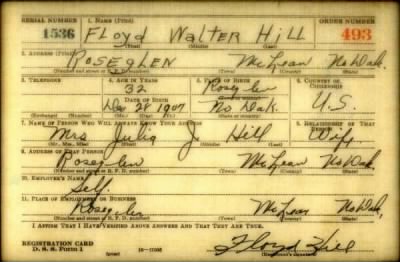 SERIAL NUMBER 1. NAME (Print) ORDER NUMBER
1536 Floyd Walter Hill 493
2. ADDRESS (Print)
Roseglen McLean No Dak.
(Number and street or R. F. D. number) (Town) (County) (State)
3. TELEPHONE 4. AGE IN YEARS 5. PLACE OF BIRTH 6. COUNTRY OF CITIZENSHIP
32 Roseglen
DATE OF BIRTH
28 1907 No Dak. U.S.
(Mo.) (Day) (Yr.) (State or country)
7. NAME OF PERSON WHO WILL ALWAYS KNOW YOUR ADDRESS 8. RELATIONSHIP OF THAT PERSON
Mrs Julia J Hill Wife
(Mr., Mrs., Miss) (First) (Middle) (Last)
9. ADDRESS OF THAT PERSON
Roseglen McLean No Dak
(Number and street or R. F. D. number) (Town) (County) (State)
10. EMPLOYER'S NAME
Self.
11. PLACE OF EMPLOYMENT OR BUSINESS
Roseglen McLean No Dak,
(Number and street or R. F. D. number) (Town) (County) (State)
I AFFIRM THAT I HAVE VERIFIED ABOVE ANSWERS AND THAT THEY ARE TRUE.
REGISTRATION CARD
D. S. S. FORM 1 Floyd Hill